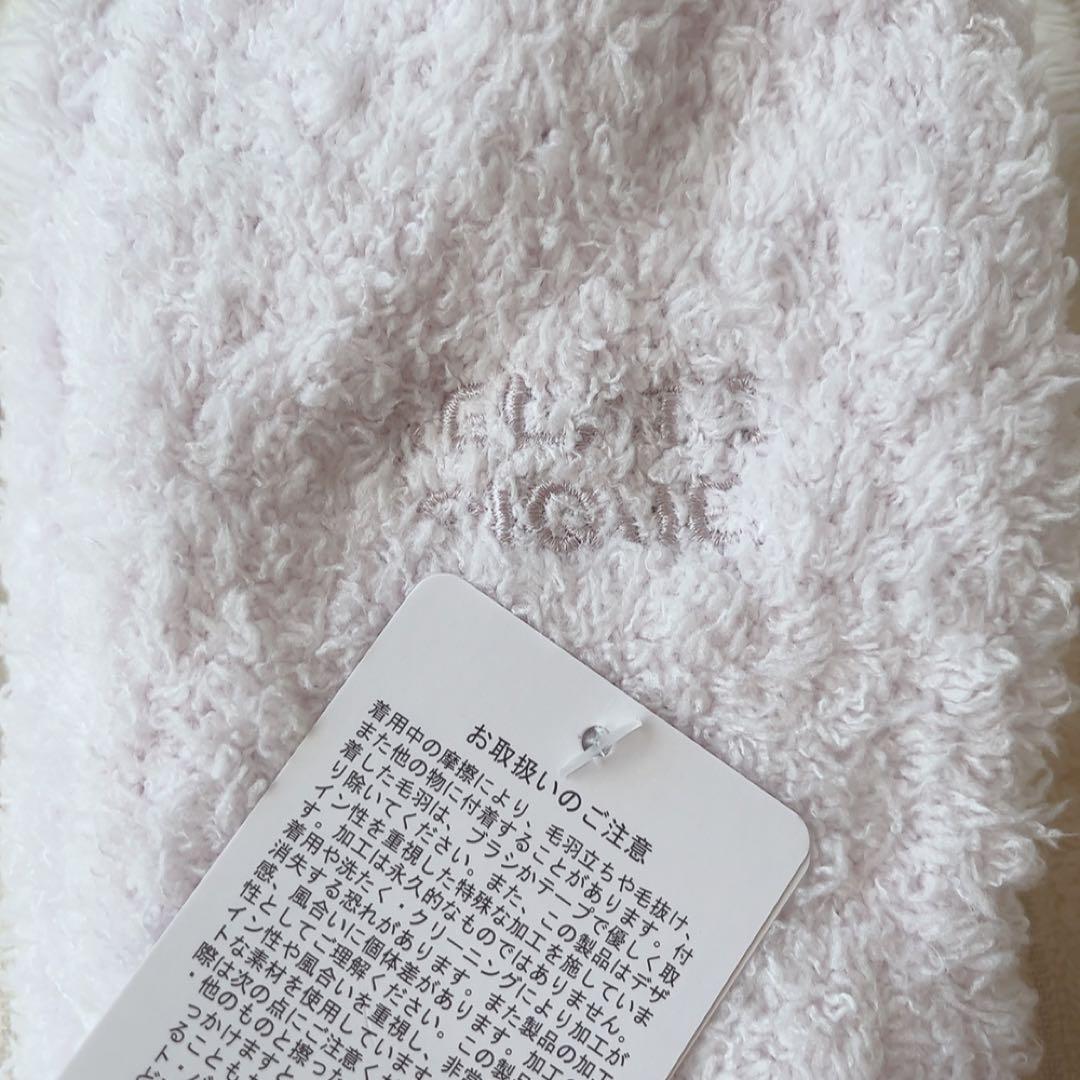 GELATO
PIQUE
お取扱いのご注意
着用中の摩擦により、毛羽立ちや毛抜け、
また他の物に付着することがあります。付
着した毛羽は、ブラシかテープで優しく取
り除いてください。また、この製品はデザ
イン性を重視した特殊な加工を施していま
す。加工は永久的なものではありません。
着用や洗たく・クリーニングにより加工が
消失する恐れがあります。また製品の加工
感、風合いに個体差があります。加工
性としてご理解ください。この製品
イン性や風合いを重視し、非常
トな素材を使用しています
際は次の点にご注意くだ
・他のものと擦った
っかけますと
ることも
ト・バ